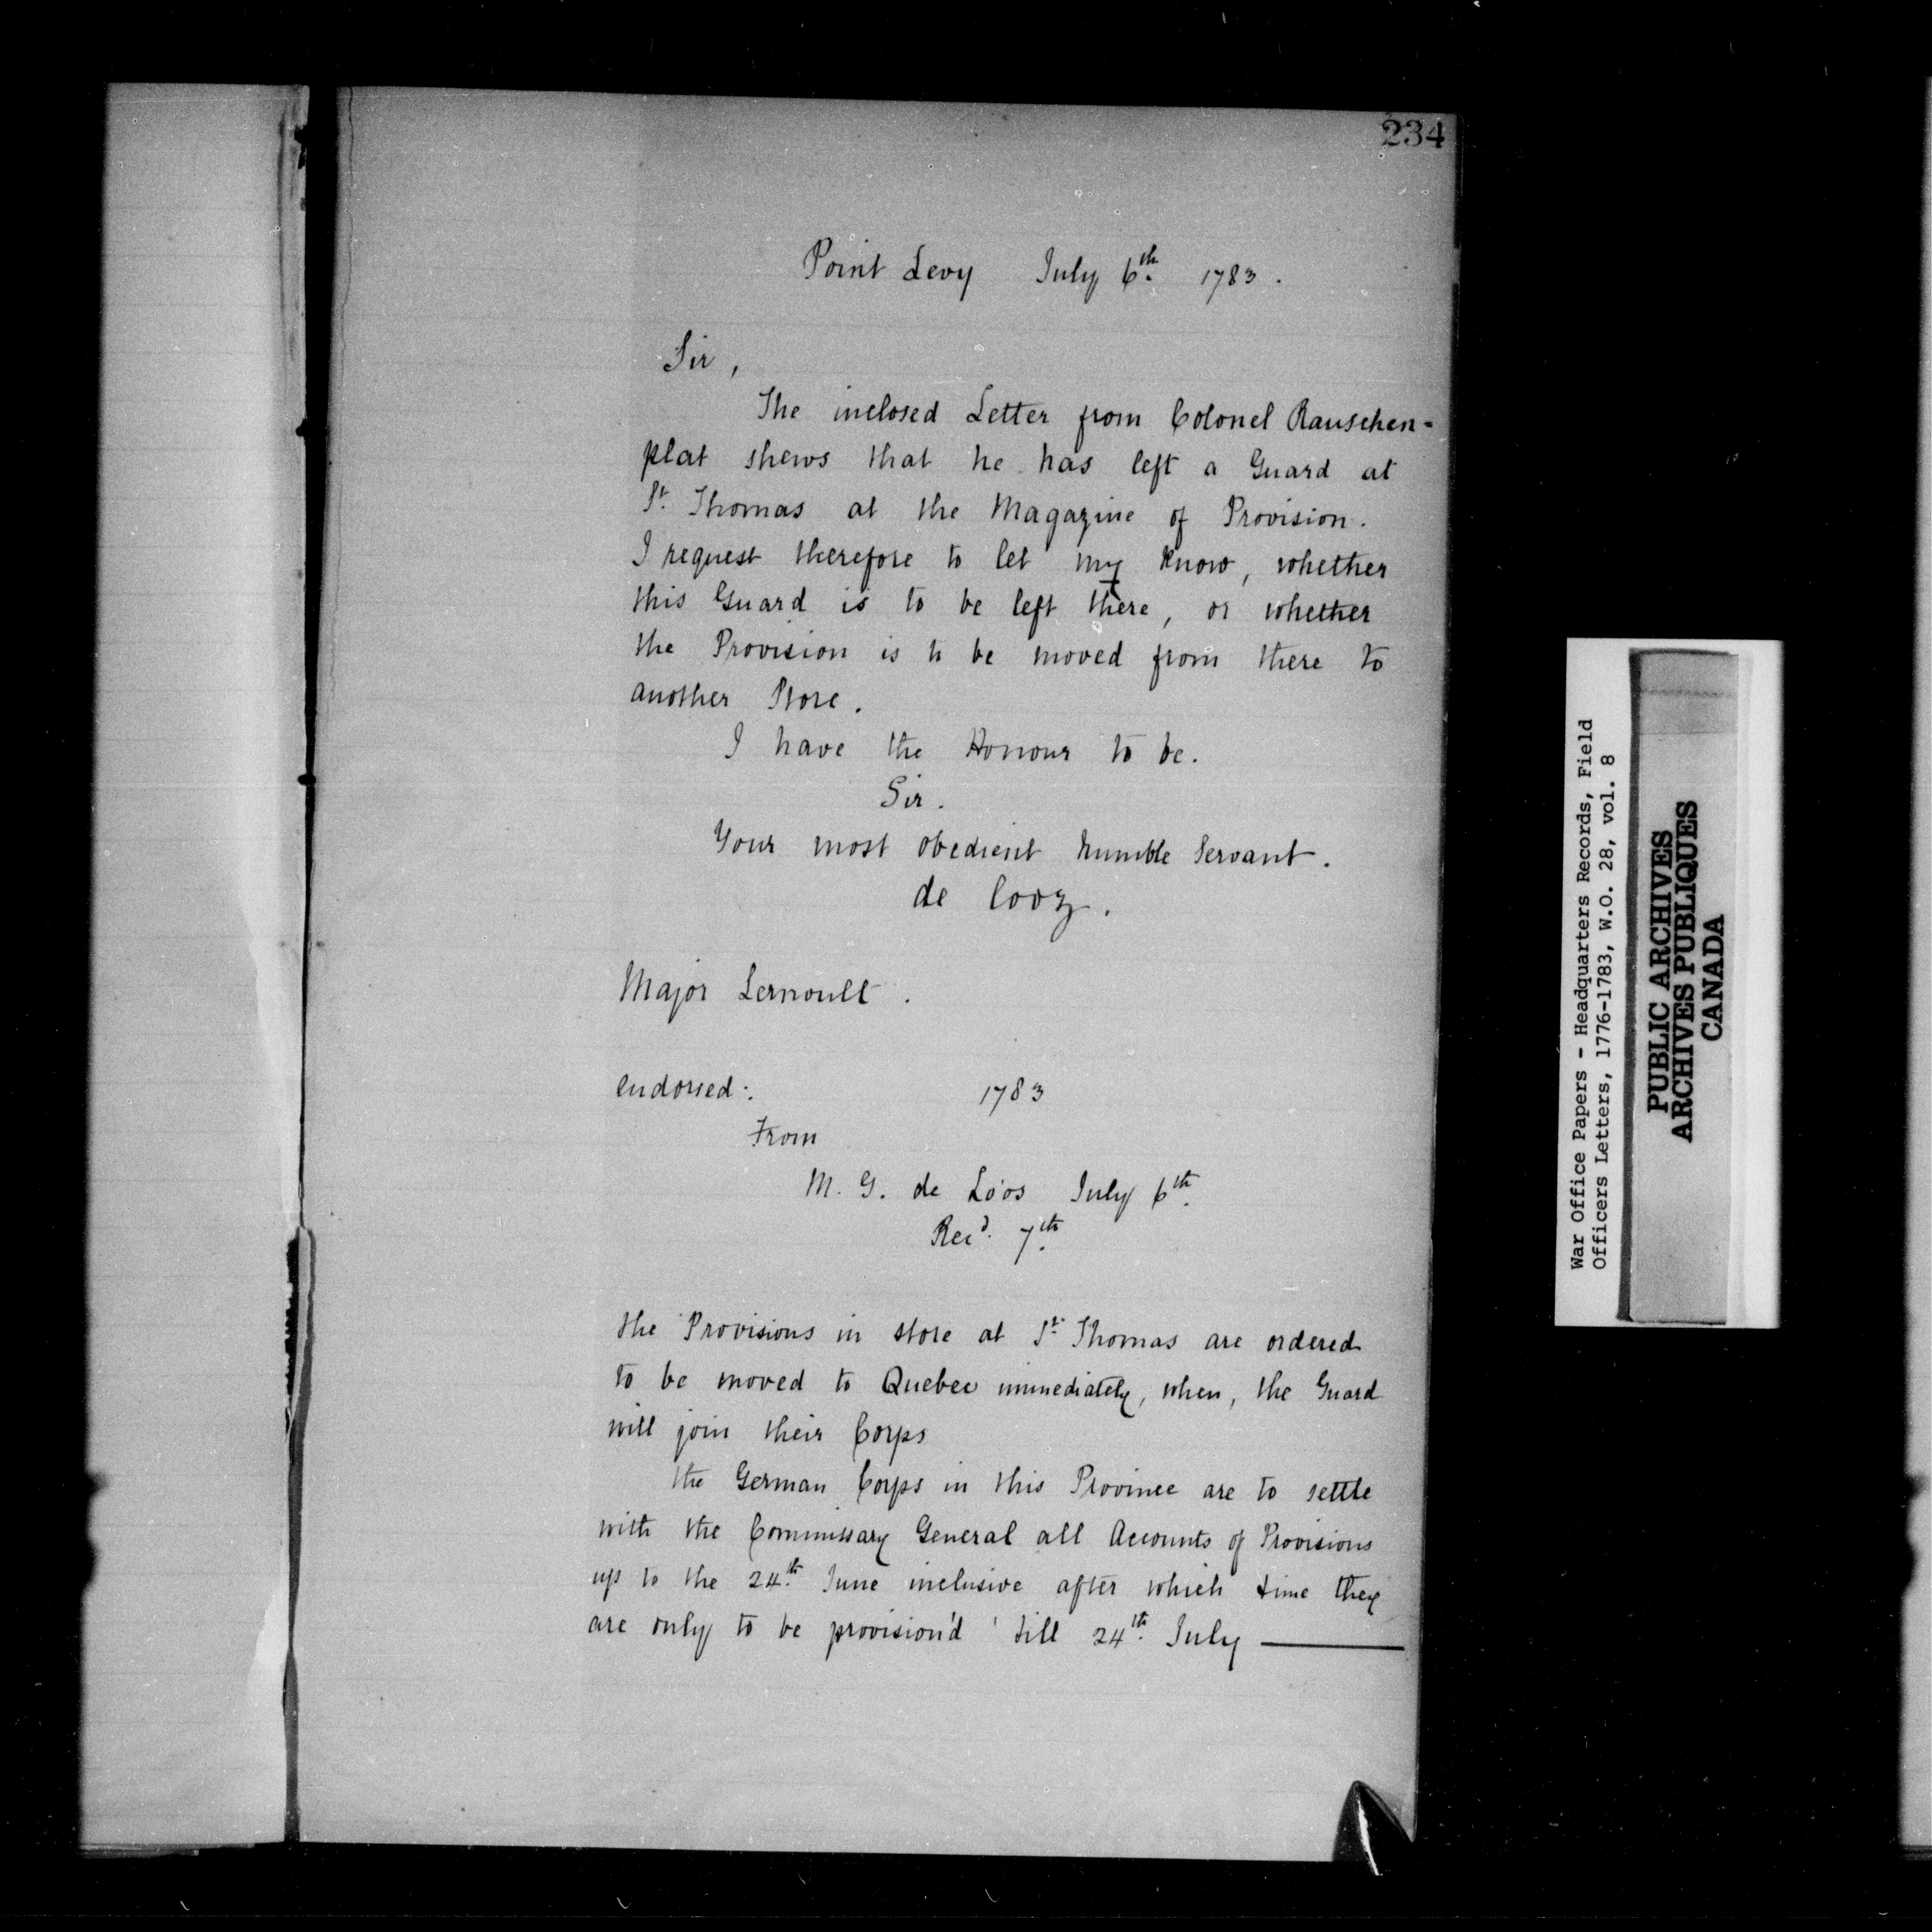 234
Point Levy July 6th. 1783.
Sir,
The inclosed Letter from Colonel Rauschen-
plat shews that he has left a Guard at
St. Thomas at the Magazine of Provision.
I request therefore to let my know, whether
this Guard is to be left there, or whether
the Provision is to be moved from there to
another Store.
I have the Honour to be.
Sir.
Your most obedient humble Servant.
de Looz.
Major Lernoult.
endorsed: 1783
From
M. G. de Loos July 6th.
Recd. 7th.
the Provisions in store at St. Thomas are ordered
to be moved to Quebec immediately, when, the Guard
will join their Corps
the German Corps in this Province are to settle
with the Commissary General all Accounts of Provisions
up to the 24th. June inclusive after which time they
are only to be provision'd 'till 24th. July
War Office Papers - Headquarters Records, Field
Officers Letters, 1776-1783, W.O. 28, vol. 8
PUBLIC ARCHIVES
ARCHIVES PUBLIQUES
CANADA